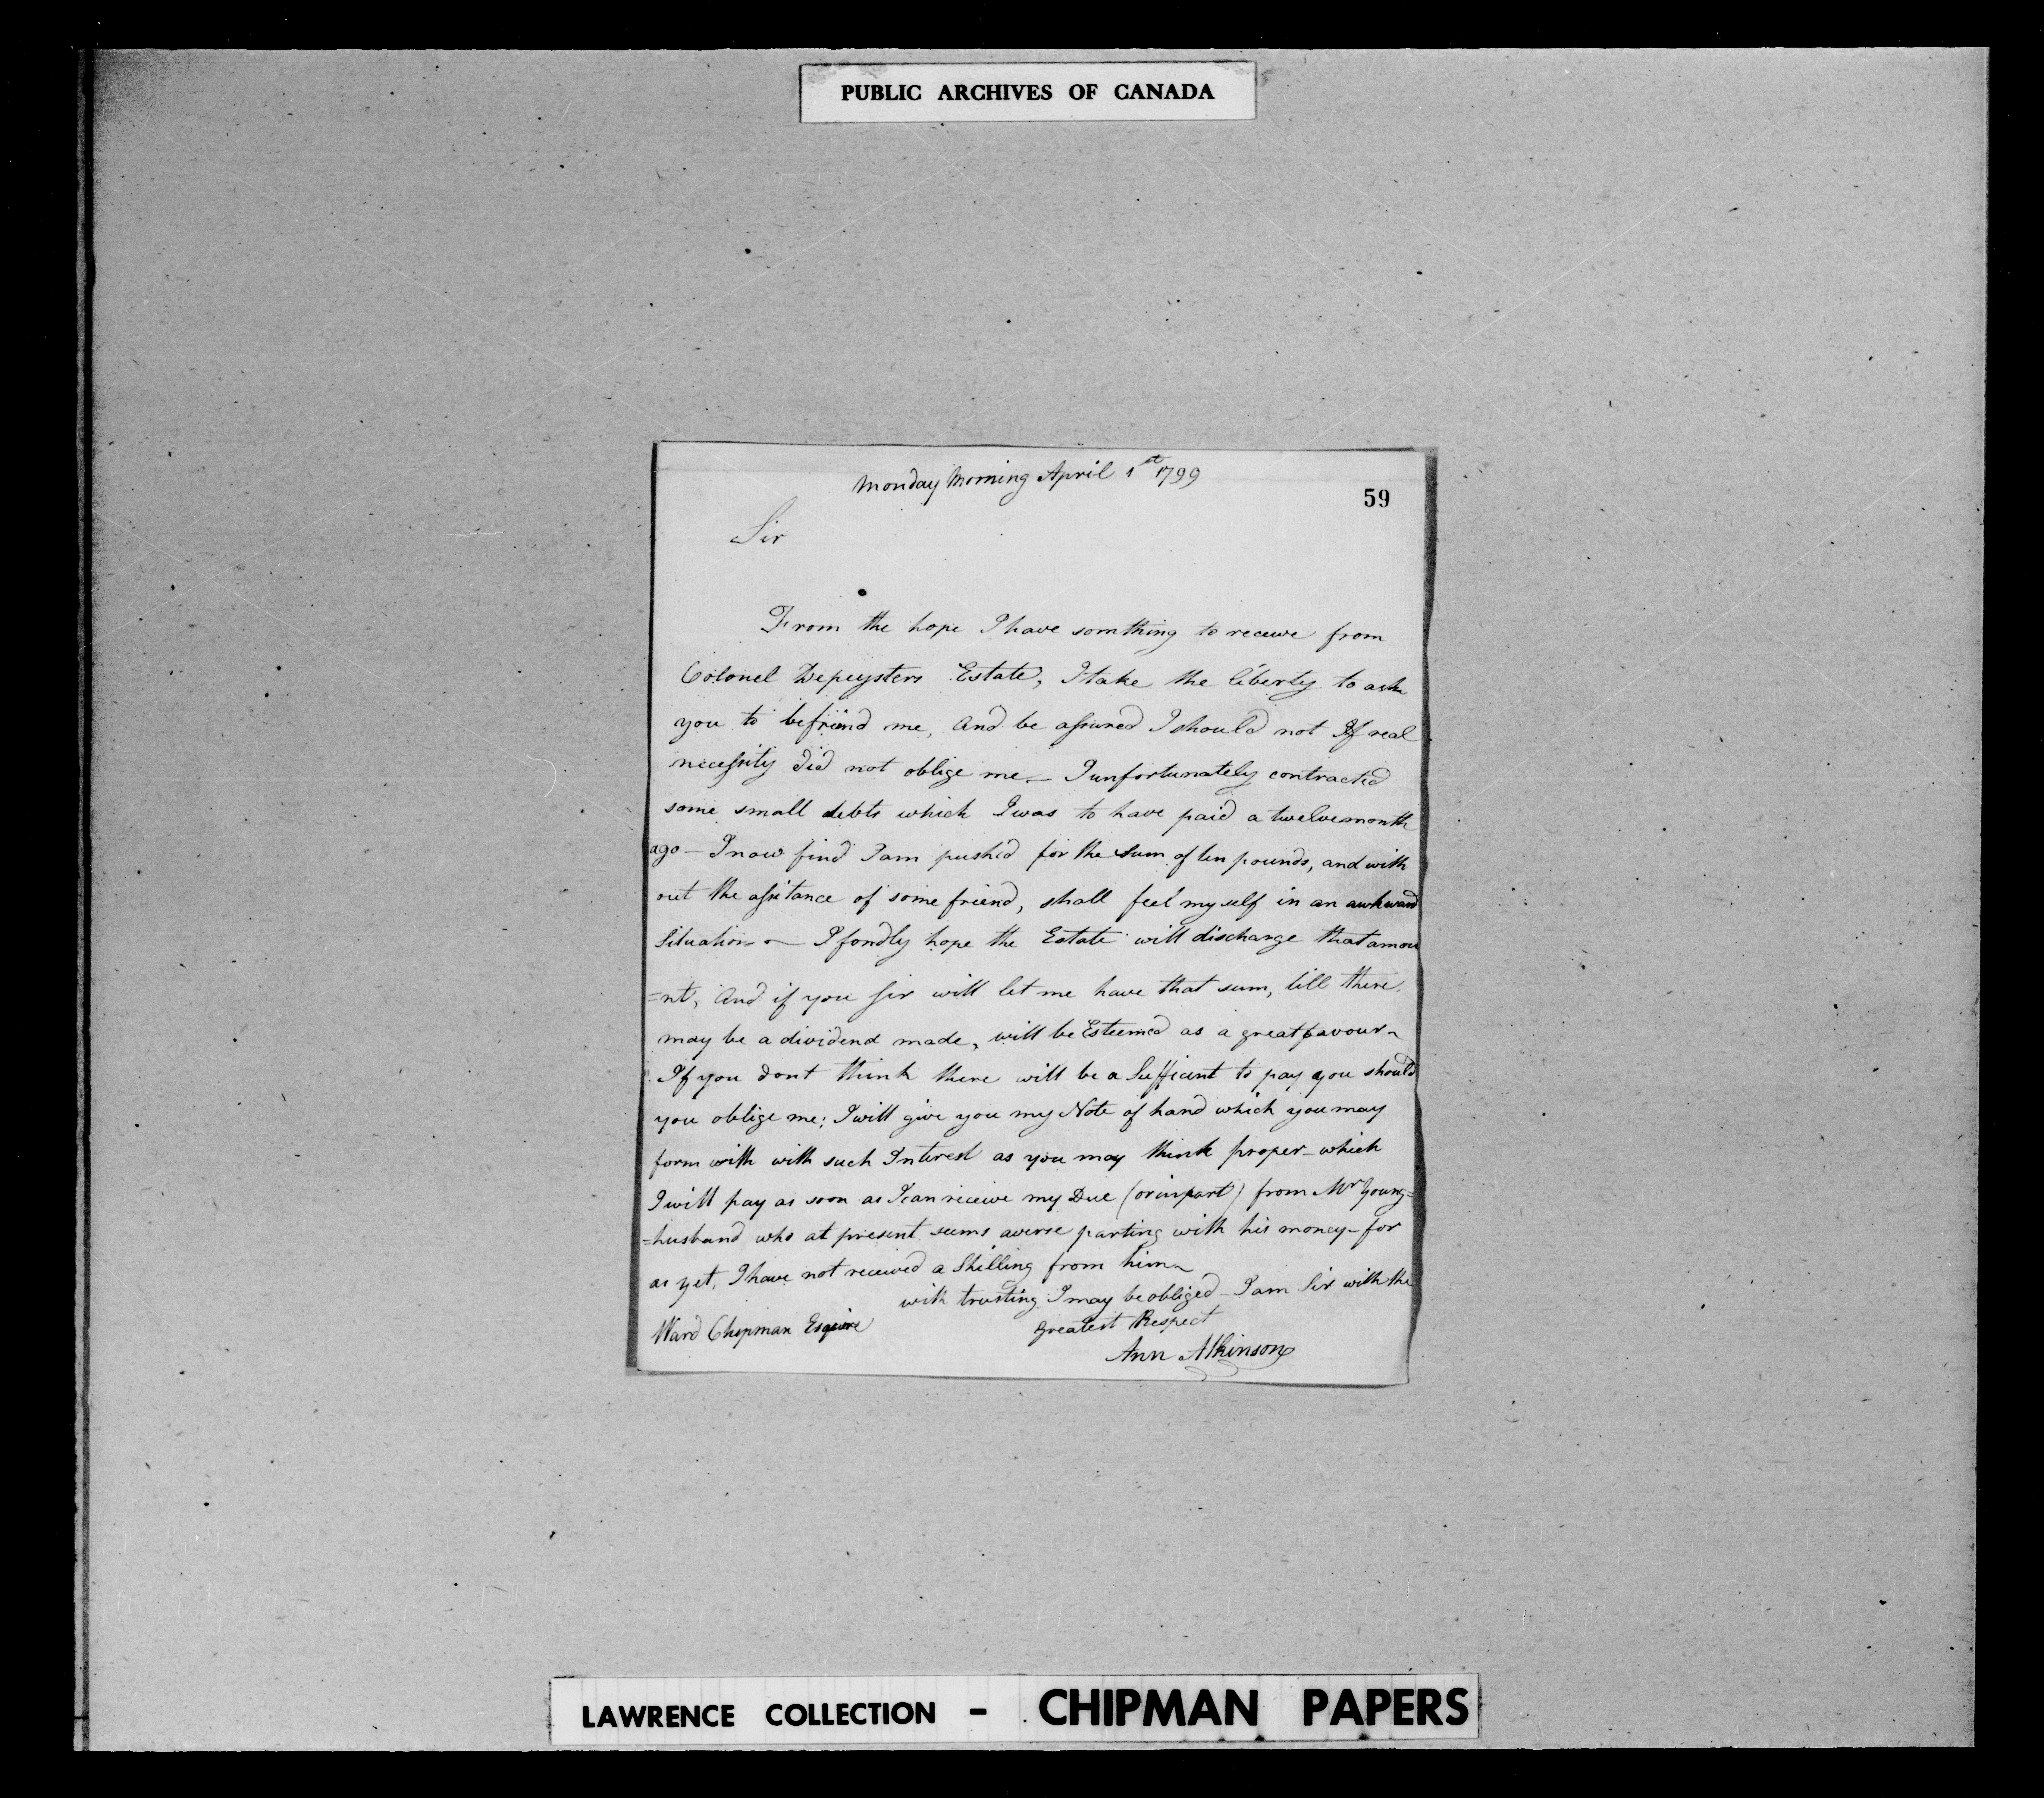 PUBLIC ARCHIVES OF CANADA
Monday Morning April 1st 1799
59
Sir
From the hope I have somthing to receive from
Colonel Depeysters Estate, I take the liberty to ask
you to befriend me, And be assured I should not If real
necessity did not oblige me — I unfortunately contracted
some small debts which I was to have paid a twelvemonth
ago — I now find I am push'd for the Sum of ten pounds, and with
out the assitance of some friend, shall feel my self in an awkward
Situation — I fondly hope the Estate will discharge that amou
=nt, And if you Sir will let me have that sum, till there
may be a dividend made, will be Esteemed as a great favour ~
If you dont think there will be a Sufficient to pay you should
you oblige me; I will give you my Note of hand which you may
form with with such Interest as you may think proper – which
I will pay as soon as I can receive my Due (or in part) from Mr Young=
=husband who at present seems averse parting with his money – for
as yet, I have not received a Shilling from him ~
with trusting I may be obliged – I am Sir with the
Greatest Respect
Ward Chipman Esquire
Ann Atkinson
LAWRENCE COLLECTION - CHIPMAN PAPERS